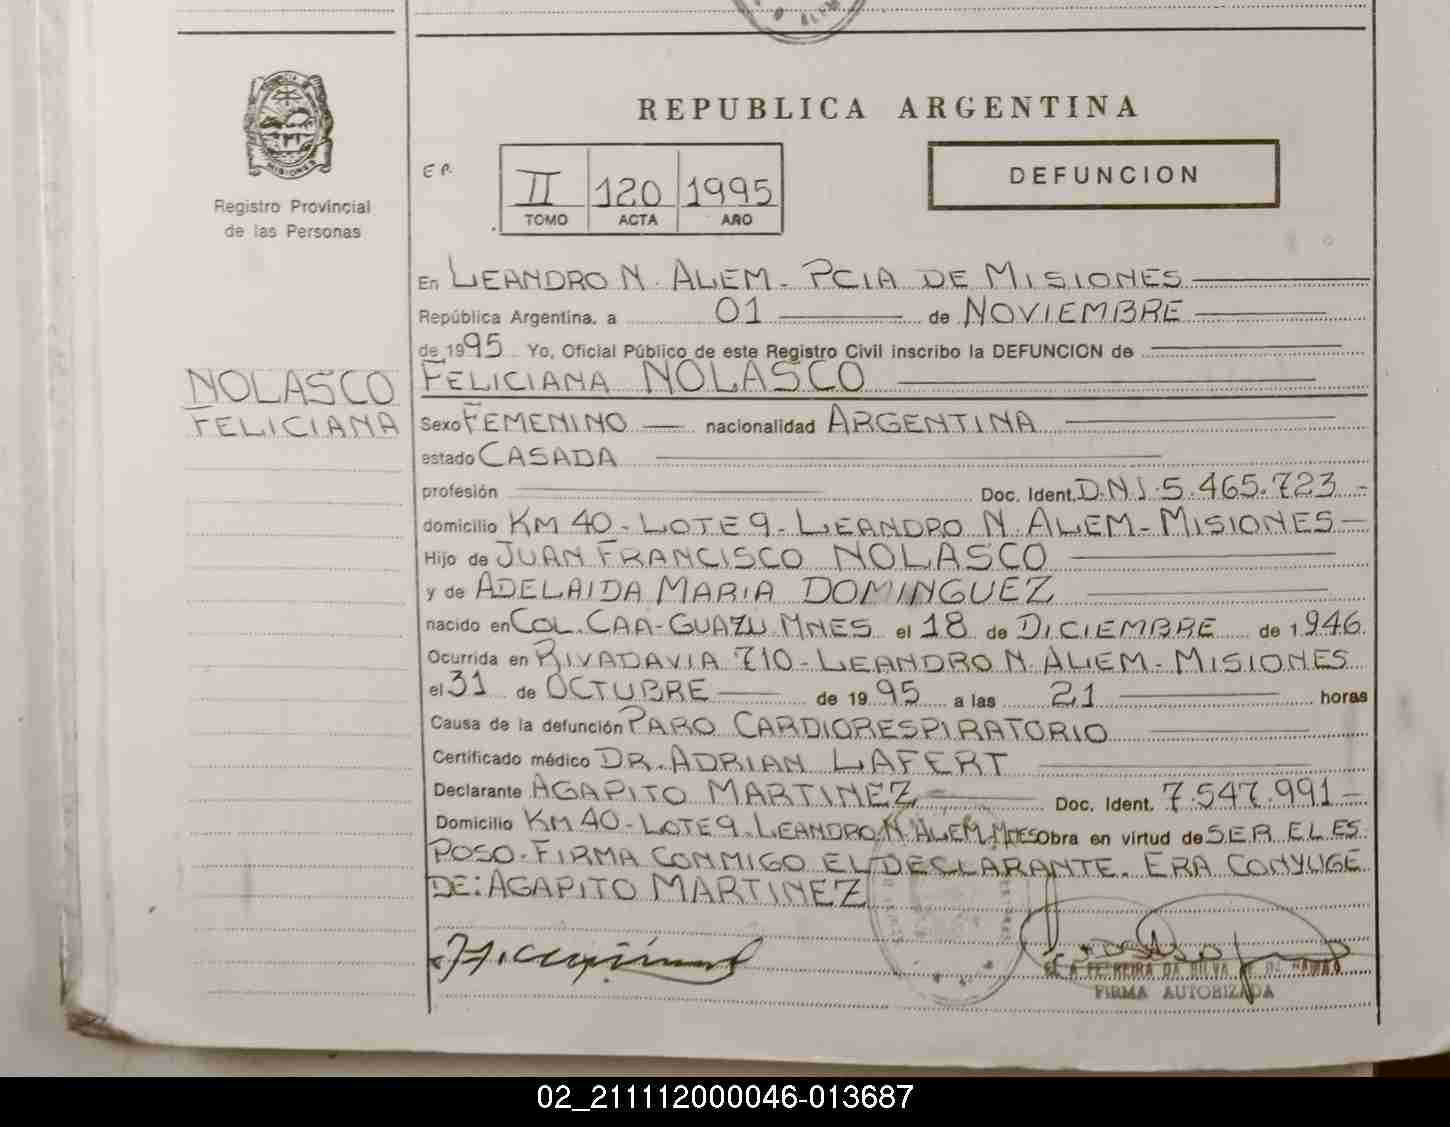 ALEM
REPUBLICA ARGENTINA
MISIONES
Registro Provincial
de las Personas
E P.
II 120 1995
TOMO ACTA AÑO
DEFUNCION
En LEANDRO N. ALEM - PCIA DE MISIONES
República Argentina, a 01 de NOVIEMBRE
de 1995 Yo, Oficial Público de este Registro Civil inscribo la DEFUNCION de
NOLASCO
FELICIANA
FELICIANA NOLASCO
Sexo FEMENINO nacionalidad ARGENTINA
estado CASADA
profesión Doc. Ident. D.N.I. 5.465.723
domicilio KM 40 - LOTE 9 - LEANDRO N. ALEM - MISIONES
Hijo de JUAN FRANCISCO NOLASCO
y de ADELAIDA MARIA DOMINGUEZ
nacido en COL. CAA-GUAZU MNES el 18 de DICIEMBRE de 1.946.
Ocurrida en RIVADAVIA 710 - LEANDRO N. ALEM - MISIONES
el 31 de OCTUBRE de 1995 a las 21 horas
Causa de la defunción PARO CARDIORESPIRATORIO
Certificado médico DR. ADRIAN LAFERT
Declarante AGAPITO MARTINEZ Doc. Ident. 7.547.991
Domicilio KM 40 - LOTE 9. LEANDRO N. ALEM. MNES obra en virtud de SER EL ES
POSO. FIRMA CONMIGO EL DECLARANTE. ERA CONYUGE
DE: AGAPITO MARTINEZ
FERREIRA DA SILVA
FIRMA AUTORIZADA
02_211112000046-013687